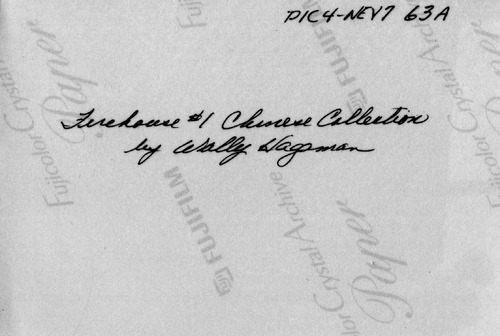 PIC4-NEV7 63A
Firehouse #1 Chinese Collection
by Wally Hagaman
Fujicolor Crystal Archive
Paper
FUJIFILM
Fujicolor Crystal Archive
Paper
FUJIFILM
Fujicolor Crystal Archive
Paper